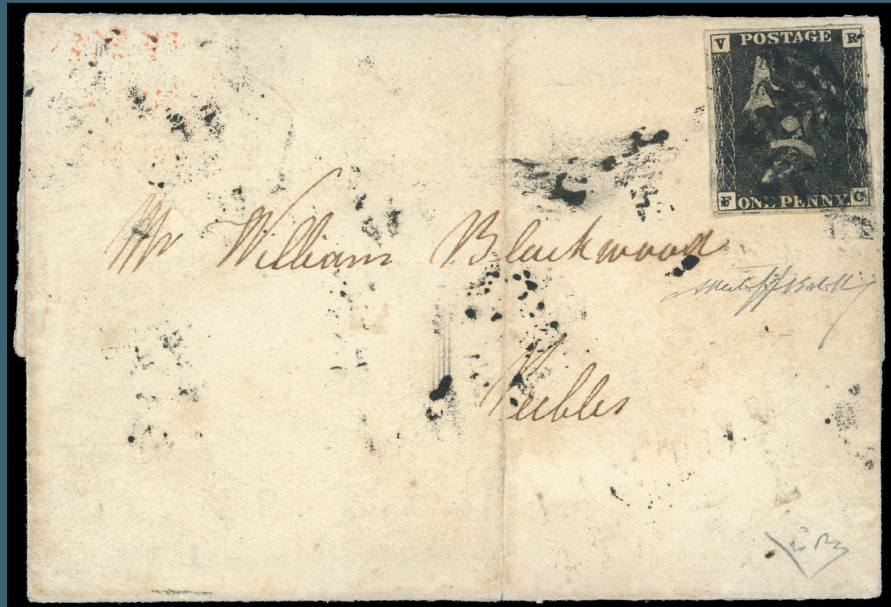 V POSTAGE R
F ONE PENNY. C
Mr William Blackwood
Peebles